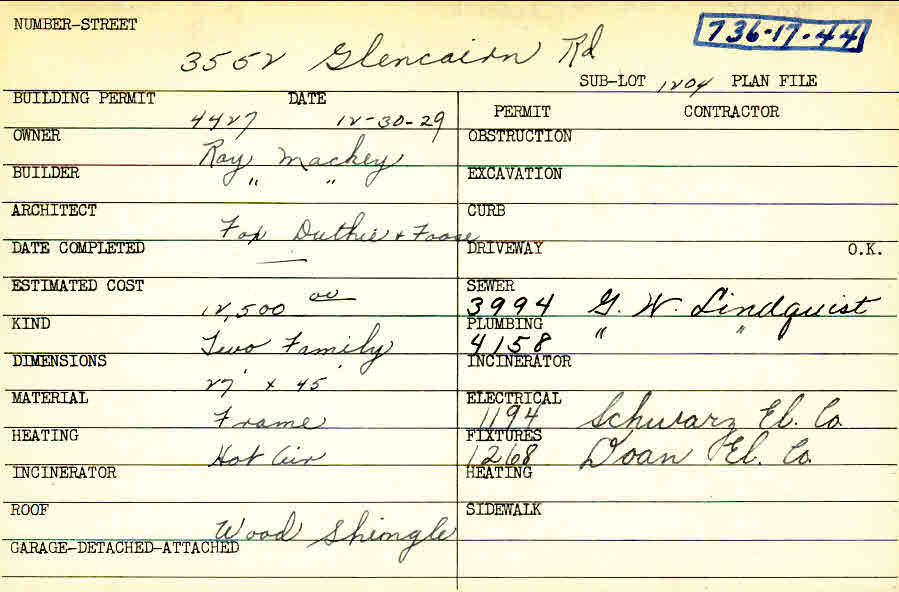 NUMBER-STREET
736-17-44
3552 Glencairn Rd
SUB-LOT 1204 PLAN FILE
BUILDING PERMIT DATE
4427 12-30-29
OWNER
Ray Mackey
BUILDER
" "
ARCHITECT
Fox Duthie + Foose
DATE COMPLETED
—
ESTIMATED COST
12,500 00
KIND
Two Family
DIMENSIONS
27' x 45'
MATERIAL
Frame
HEATING
Hot Air
INCINERATOR
ROOF
Wood Shingle
GARAGE-DETACHED-ATTACHED
PERMIT CONTRACTOR
OBSTRUCTION
EXCAVATION
CURB
DRIVEWAY O.K.
SEWER
3994 G. W. Lindquist
PLUMBING
4158 " "
INCINERATOR
ELECTRICAL
1194 Schwarz El. Co.
FIXTURES
1268 Doan El. Co.
HEATING
SIDEWALK